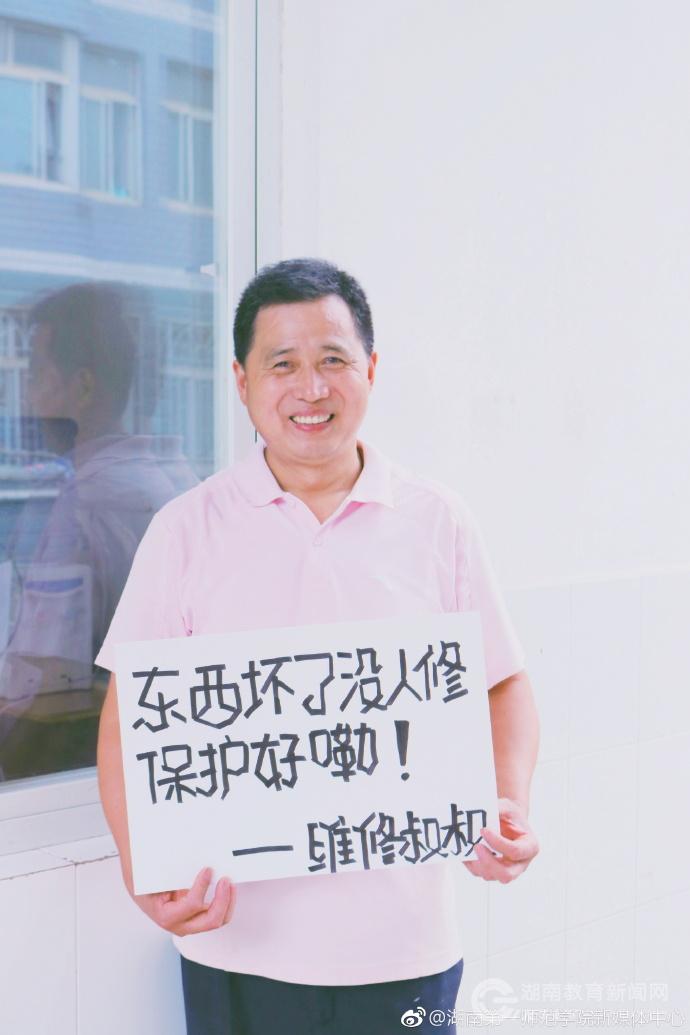 东西坏了没人修
保护好嘞！
— 维修叔叔
湖南教育新闻网
@湖南第一师范学院新媒体中心